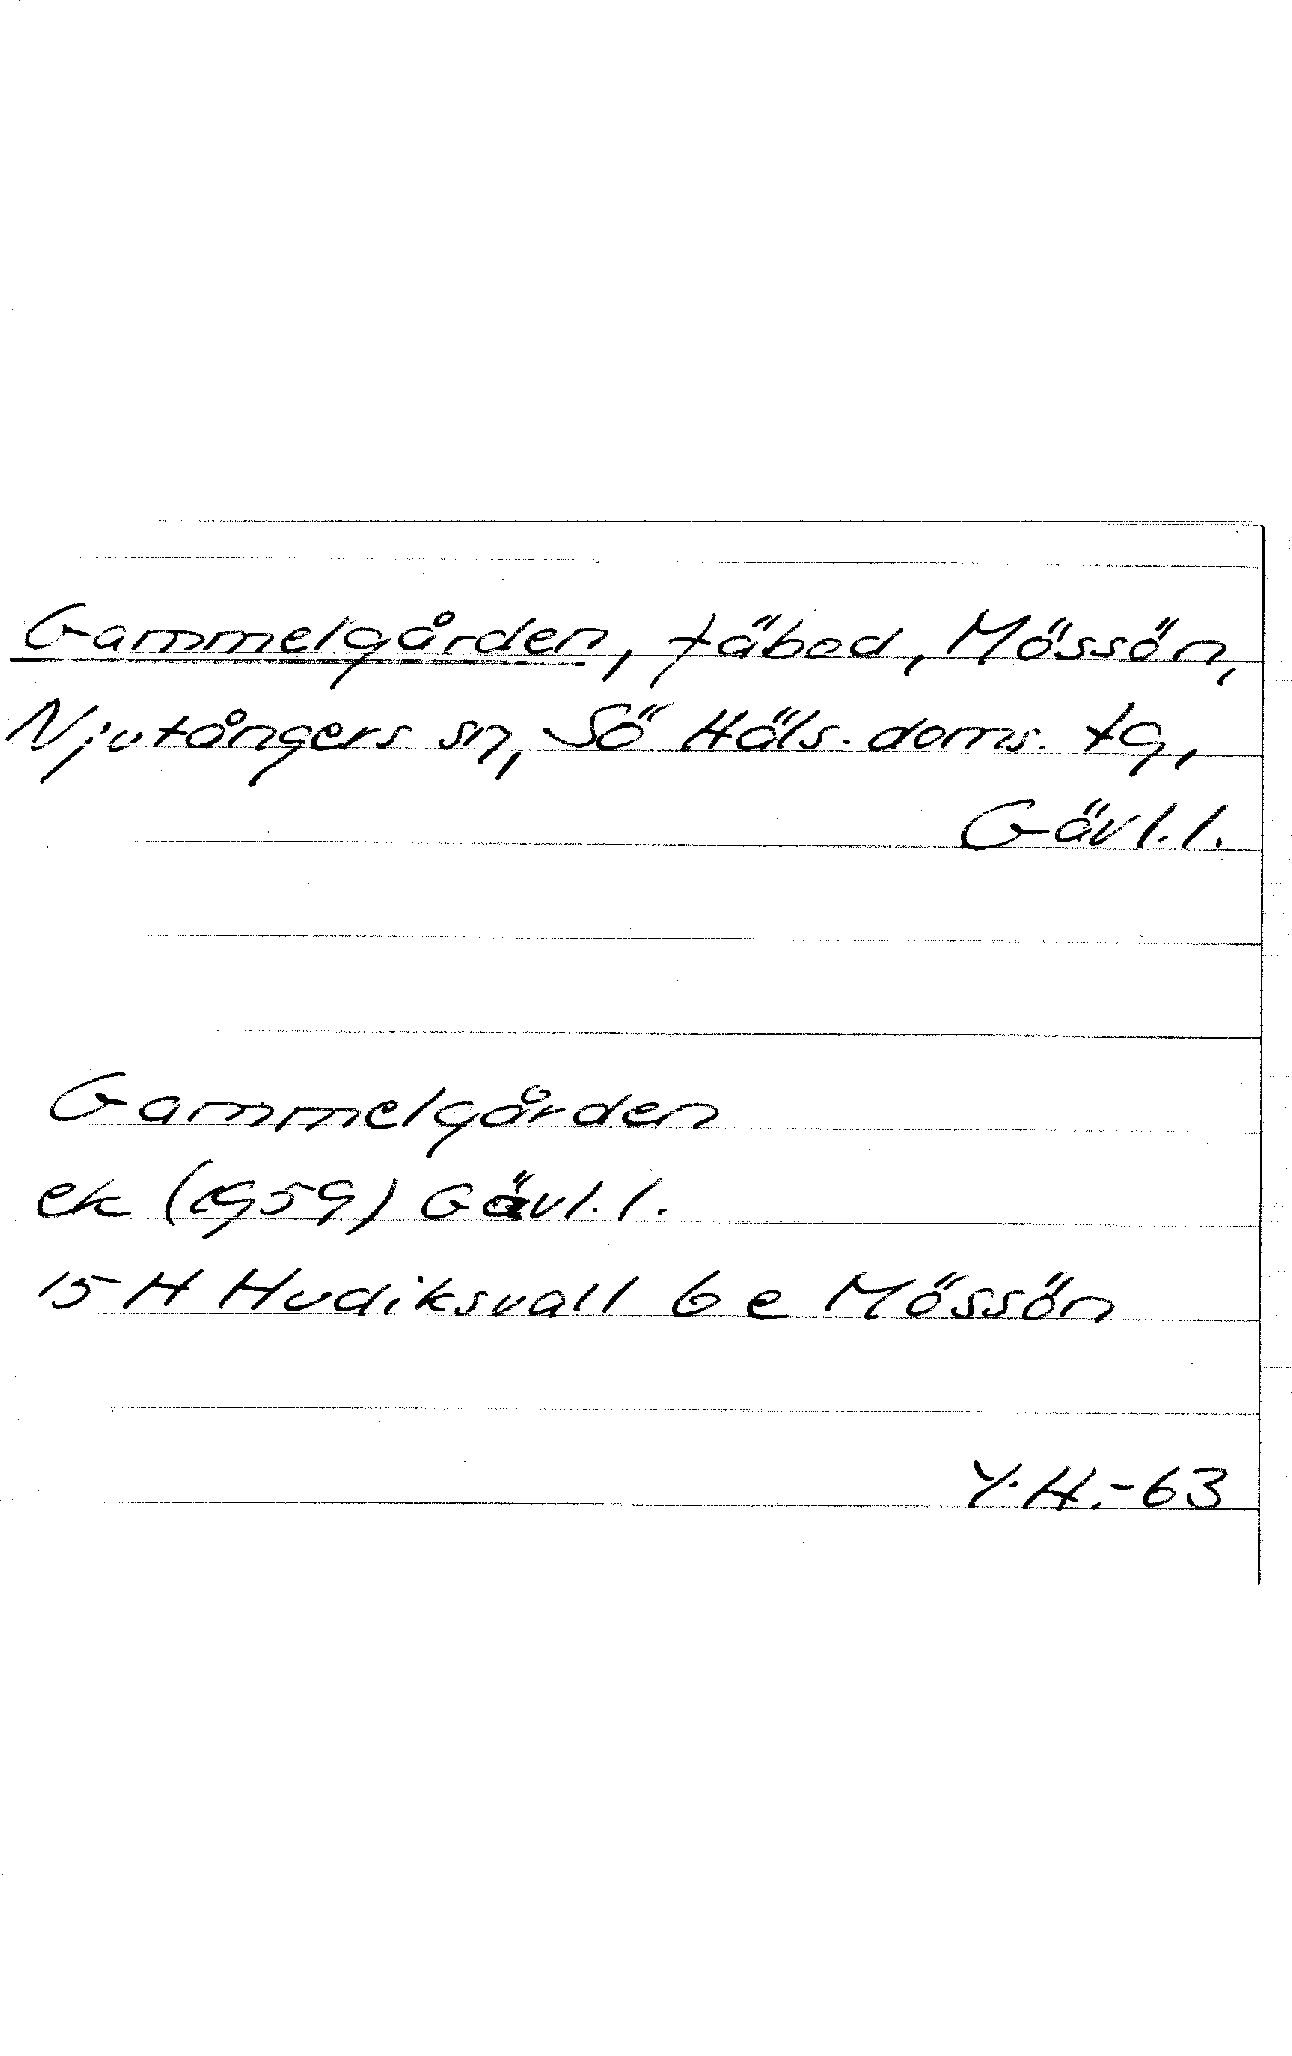 Gammelgården, fäbod, Mössön,
Njutångers sn, Sö Häls. doms. tg,
Gävl.l.
Gammelgården
ek (1959) Gävl.l.
15 H Hudiksvall 6 e Mössön
Y.H.-63